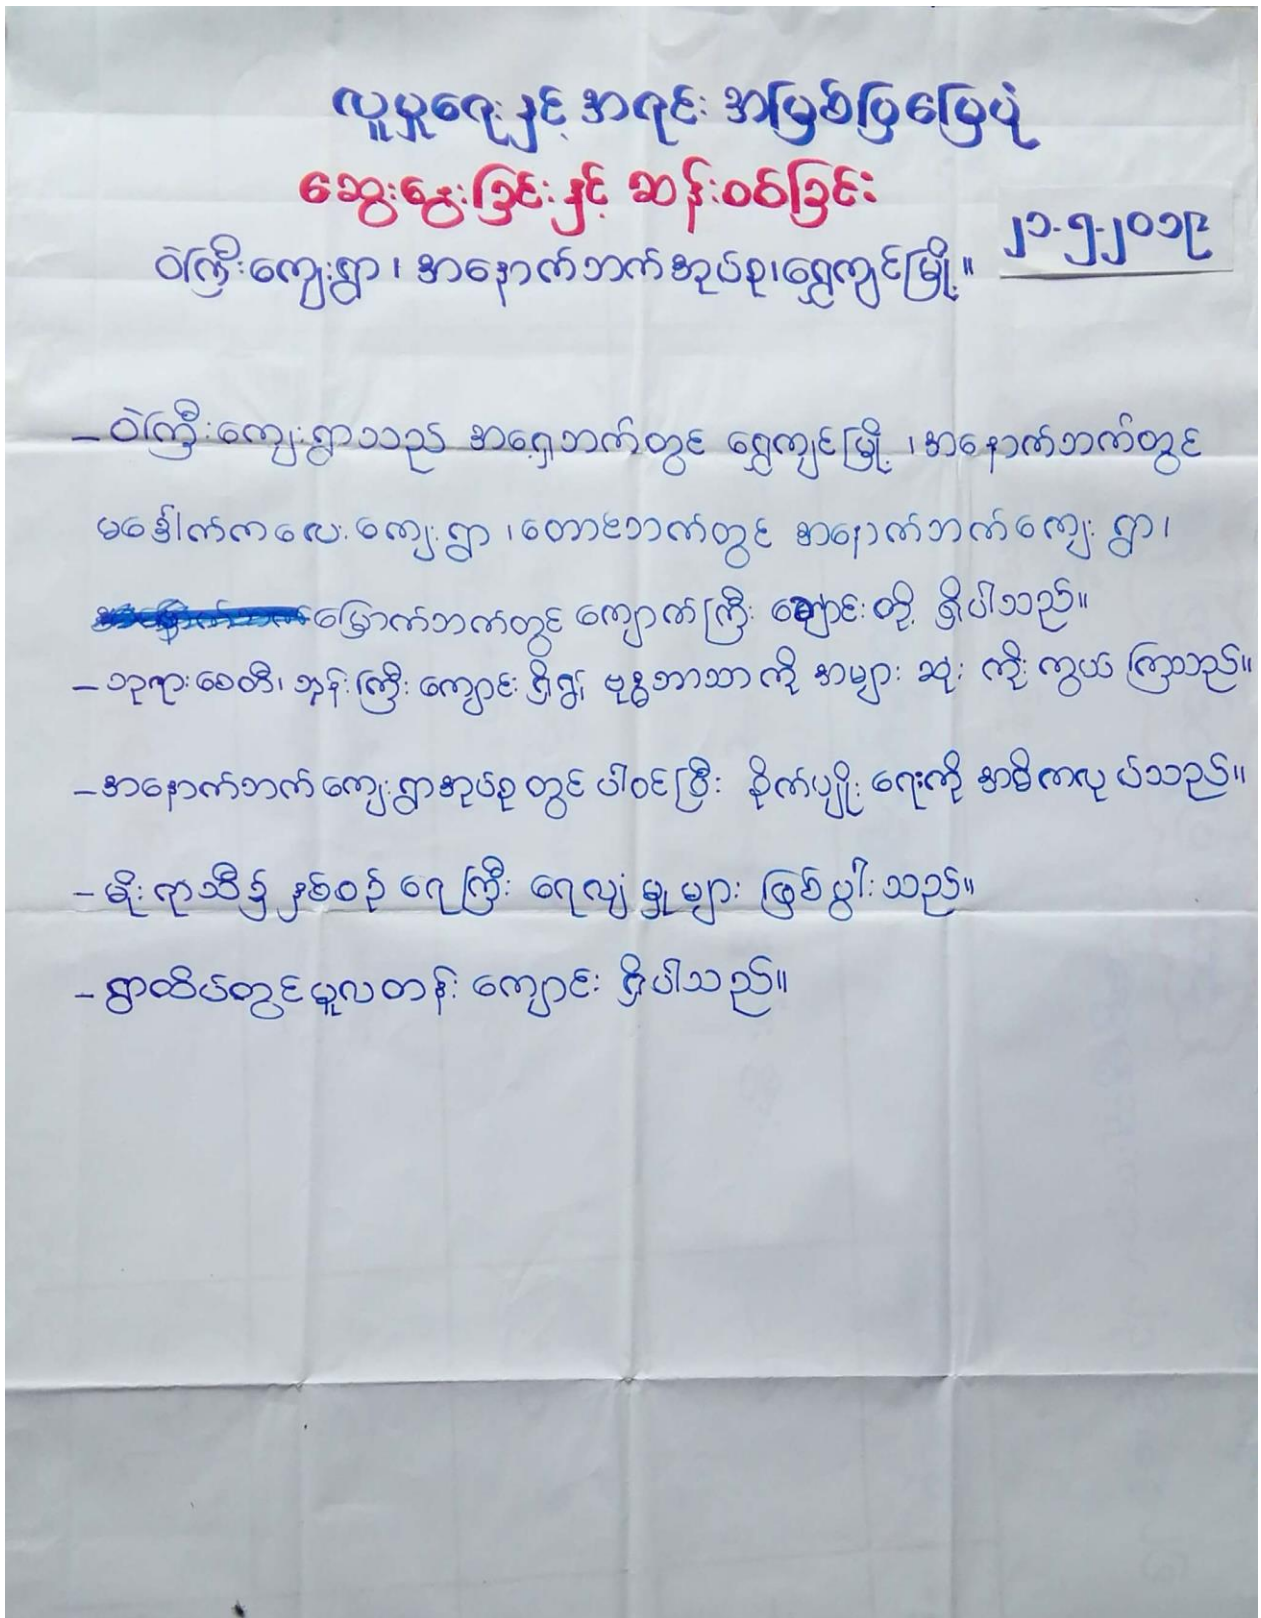 လူမှုရေးနှင့် အရင်း အမြစ်ပြမြေပုံ
ဆွေးနွေးခြင်းနှင့် ဆန်းစစ်ခြင်း
၂၁-၅-၂၀၁၉
ဝဲကြီးကျေးရွာ၊ အနောက်ဘက်အုပ်စု၊ရွှေကျင်မြို့။
- ဝဲကြီးကျေးရွာသည် အရှေ့ဘက်တွင် ရွှေကျင်မြို့ ၊အနောက်ဘက်တွင်
မဒေါက်ကလေး ကျေးရွာ ၊တောင်ဘက်တွင် အနောက်ဘက်ကျေးရွာ၊
မြောက်ဘက်တွင် ကျောက်ကြီး ချောင်းတို့ ရှိပါသည်။
- ဘုရားစေတီ၊ ဘုန်းကြီး ကျောင်း ရှိ၍ ဗုဒ္ဓဘာသာကို အများ ဆုံး ကိုးကွယ် ကြသည်။
- အနောက်ဘက်ကျေးရွာအုပ်စုတွင် ပါဝင်ပြီး စိုက်ပျိုး ရေးကို အဓိကလုပ်သည်။
- မိုးရာသီ၌ နှစ်စဉ် ရေကြီး ရေလျှံမှုများ ဖြစ်ပွါးသည်။
- ရွာထိပ်တွင်မူလတန်း ကျောင်း ရှိပါသည်။